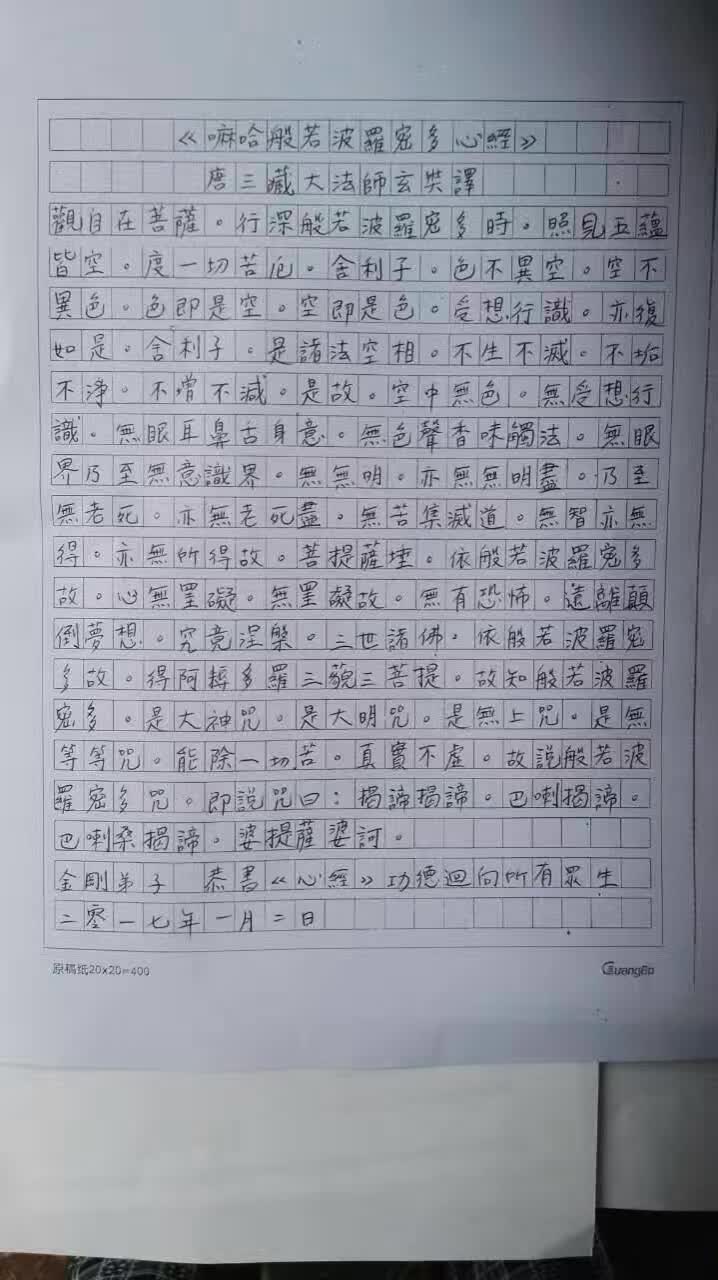 《嘛哈般若波羅密多心經》
唐三藏大法師玄奘譯
觀自在菩薩。行深般若波羅密多時。照見五蘊
皆空。度一切苦厄。舍利子。色不異空。空不
異色。色即是空。空即是色。受想行識。亦復
如是。舍利子。是諸法空相。不生不滅。不垢
不淨。不增不減。是故。空中無色。無受想行
識。無眼耳鼻舌身意。無色聲香味觸法。無眼
界乃至無意識界。無無明。亦無無明盡。乃至
無老死。亦無老死盡。無苦集滅道。無智亦無
得。亦無所得故。菩提薩埵。依般若波羅密多
故。心無罣礙。無罣礙故。無有恐怖。遠離顛
倒夢想。究竟涅槃。三世諸佛。依般若波羅密
多故。得阿耨多羅三藐三菩提。故知般若波羅
密多。是大神咒。是大明咒。是無上咒。是無
等等咒。能除一切苦。真實不虛。故說般若波
羅密多咒。即說咒曰：揭諦揭諦。巴喇揭諦。
巴喇桑揭諦。婆提薩婆訶。
金剛弟子 恭書《心經》功德迴向所有眾生
二零一七年一月二日
原稿纸20x20=400
GuangBo